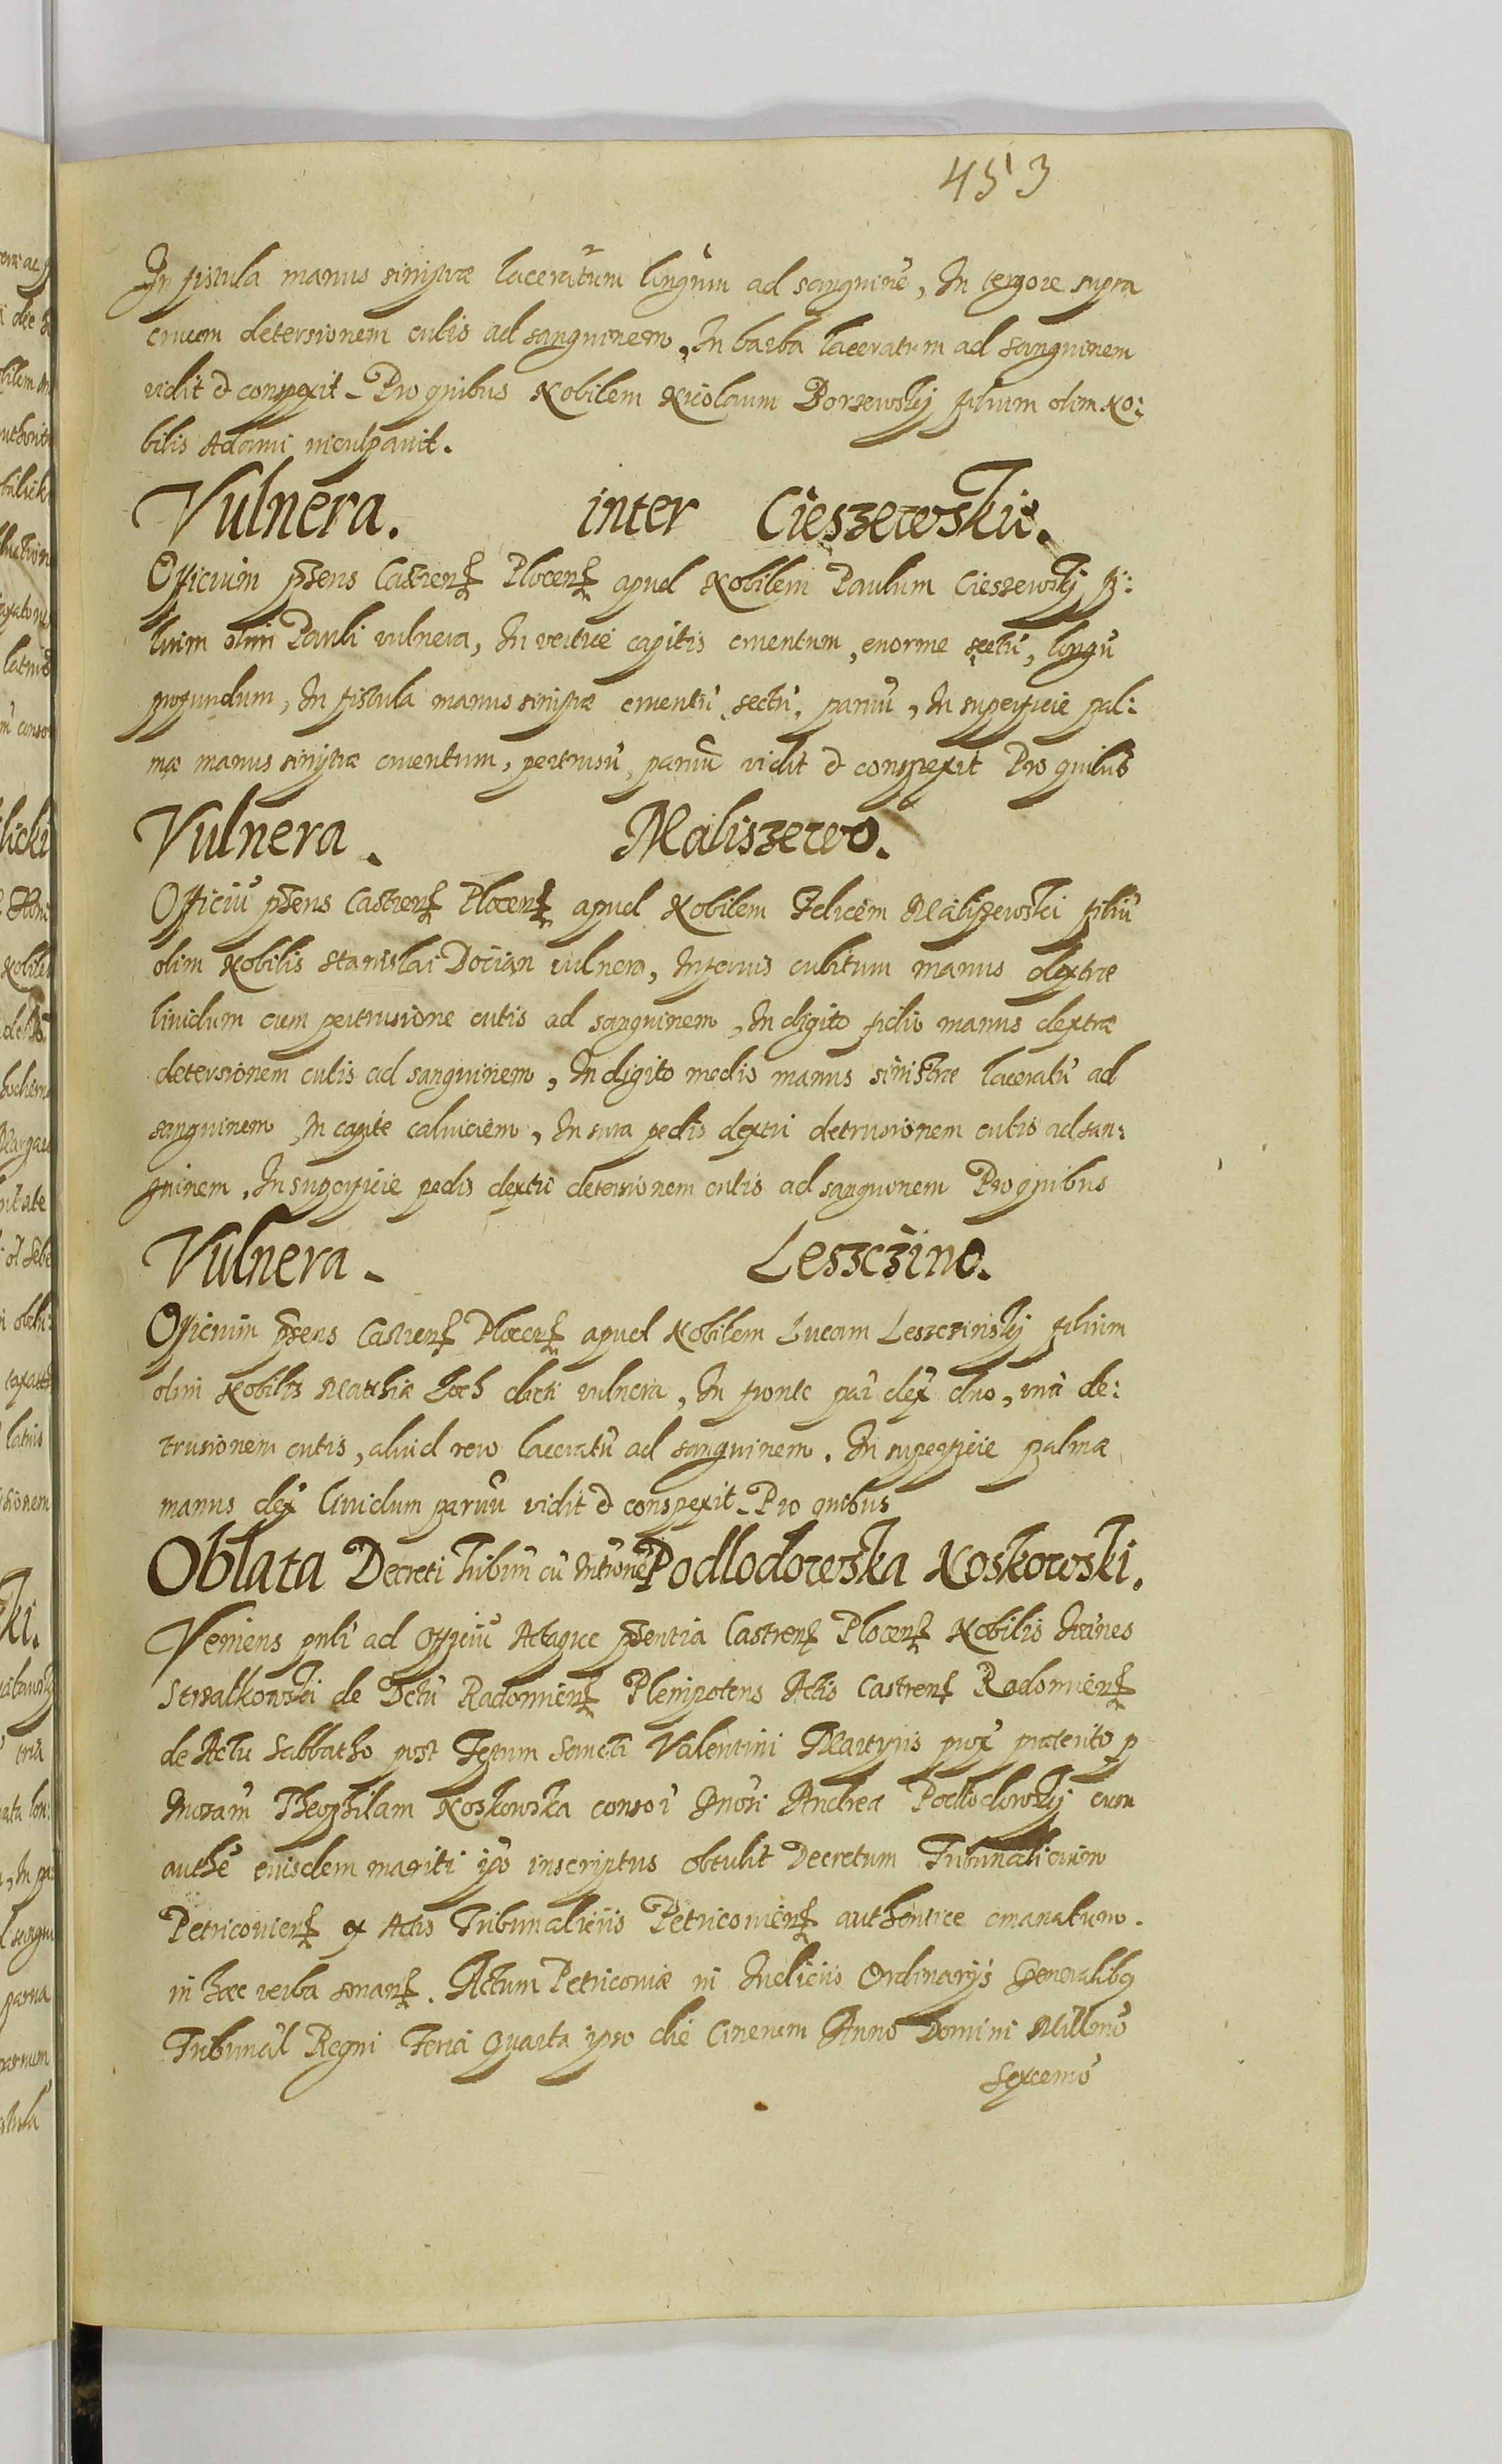 453
In fistula manus sinistræ laceratum longum ad sanguinē, In tergore supra
crucem detersionem cutis ad sanguinem, In barba laceratum ad sanguinem
vidit & conspexit. Pro quibus Nobilem Nicolaum Borzewskÿ filium olim No:
bilis Adami inculpauit.
Vulnera. inter Cieszewskie.
Officium p̄sens Castren̄ Plocen̄ apud Nobilem Paulum Cieszewskÿ fi:
lium olim Pauli vulnera, In vertice capitis cruentum, enorme sectū, longū
profundum, In fistula manus sinistræ cruentū sectū, paruū, In superficie pal:
mæ manus sinistræ cruentum, pertrusū, paruū vidit & conspexit Pro quibus
Vulnera. Maliszewo.
Officiū p̄sens Castren̄ Plocen̄ apud Nobilem Felicem Maliszewski filiū
olim Nobilis Stanislai Docian vulnera, Inferius cubitum manus dextræ
liuidum cum pertrusione cutis ad sanguinem, In digito manus dextræ
detersionem cutis ad sanguinem, In digito medio manus sinistræ laceratū ad
sanguinem In capite caluiciem, In sura pedis dextri detrusionem cutis ad san:
guinem, In superficie pedis dextri detersionem cutis ad sanguinem Pro quibus
Vulnera. Leszczino.
Officium p̄sens Castren̄ Plocen̄ apud Nobilem Lucam Leszczinskÿ filium
olim Nobilis Mathiæ dicti vulnera, In fronte par̄ dex̄ duo, unū de:
trusionem cutis, aliud vero laceratū ad sanguinem. In superficie palmæ
manus dex̄ liuidum paruū vidit & conspexit. Pro quibus
Oblata Decreti Tribun̄ cū Podlodowska Noskowski.
Veniens pn̄li ad Officiū Actaque p̄sentia Castren̄ Plocen̄ Nobilis Ioannes
Strzalkowski de Dctū Radomien̄ Plenipotens Actis Castren̄ Radomien̄
de Actu Sabbatho post Festum Sancti Valentini Martyris prox̄ præterito p
Theophilam Noskowska consor̄ Andreæ Podlodowskÿ cum
authē eiusdem mariti ipō inscriptus obtulit Decretum Tribunalicium
Petricouien̄ ex Actis Tribunalicijs Petricouien̄ authentice emanatum.
in hæc verba sonan̄. Actum Petricouiæ in Iudicijs Ordinarijs Generalibq
Tribunal̄ Regni Feria Quarta ipso die Cinerum Anno Domini Millmō
Sexcenmō